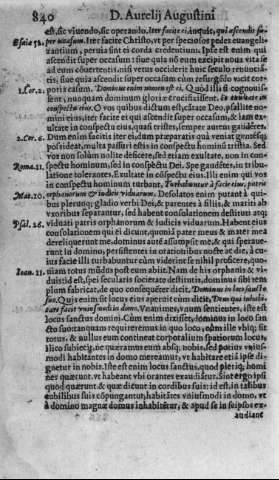 840 D. Aurelij Augustini
est, sic viuendo, sic operando. Iter facite ei inquit, qui ascendit su-
Esaia 52. per occasum. Iter facite Christo, vt per speciosos pedes euangeli-
zantium, peruia sint ei corda credentium. Ipse est enim qui
ascendit super occasum: siue quia nō eum excipit noua vita se
ad eum cōuertentis, nisi vetus occiderit huic seculo renuntiā-
tis, siue quia ascendit super occasum cùm resurgēdo vicit cor-
1. Cor. 2. Dominus enim nomen est ei. Quod illi si cognouis-
sent, nunquam dominum gloriæ crucifixissent. Et
conspectu eius. O vos quibus dictum est, cātate Deo, psallite no-
mini eius, iter facite ei qui ascendit super occasum, & iam ex-
ultate in conspectu eius, quasi tristes, semper autem gaudētes.
2. Cor. 6. Dum enim facitis iter ei, dum præparatis quà veniat
possideat, multa passuri estis in conspectu hominū tristia. Sed
vos non solùm nolite deficere, sed etiam exultate, non in con-
Roma. 12. spectu hominum, sed in conspectu Dei. Spe gaudētes, in tribu-
latione tolerantes. Exultate in cōspectu eius. Illi enim qui vos
in conspectu hominum turbant, Turbabuntur à facie eius, patris
Mat. 10. orphanorum & iudicis viduarum. Desolatos enim putant à qui-
bus plerunque gladio verbi Dei, & parentes à filiis, & mariti ab
vxoribus separantur, sed habent consolationem destituti atq;
viduati patris orphanorum & iudicis viduarum. Habent eius
Psal. 26. consolationem qui ei dicunt, quoniā pater meus & mater mea
dereliquerunt me, dominus autē assumpsit me, & qui sperave-
runt in domino, persistentes in orationibus nocte ac die, à cu-
ius facie illi turbabuntur cùm viderint se nihil proficere, quo-
Ioan. 12. niam totus mūdus post eum abiit. Nam de his orphanis & vi-
duis, id est, spei secularis societate destitutis, dominus sibi tem-
plum fabricat, de quo consequenter dicit, Dominus in loco sancto
suo. Quis enim sit locus eius aperuit cùm dicit, Deus qui inhabi-
tare facit vnius modi in domo. Vnanimes, vnum sentientes, iste est
locus sanctus domini. Cùm enim dixisset, dominus in loco san-
cto suo, tanquam requireremus in quo loco, cùm ille vbiq; sit
totus, & nullus eum contineat corporalium spatiorum locus,
illico subiecit, ne quæramus eum absq; nobis, sed potius vnius-
modi habitantes in domo mereamur, vt habitare etiā ipse di-
gnetur in nobis. Iste est enim locus sanctus, quod pleriq; homi-
nes quærunt, vt habeant vbi orantes exaudiātur. Sint ergo ipsi
quod quærunt: & quæ dicunt in cordibus suis: id est, in talibus
cubilibus suis cōpungantur, habitātes vniusmodi in domo, vt
à domino magnæ domus inhabitētur, & apud se in seipsos ex-
audiant